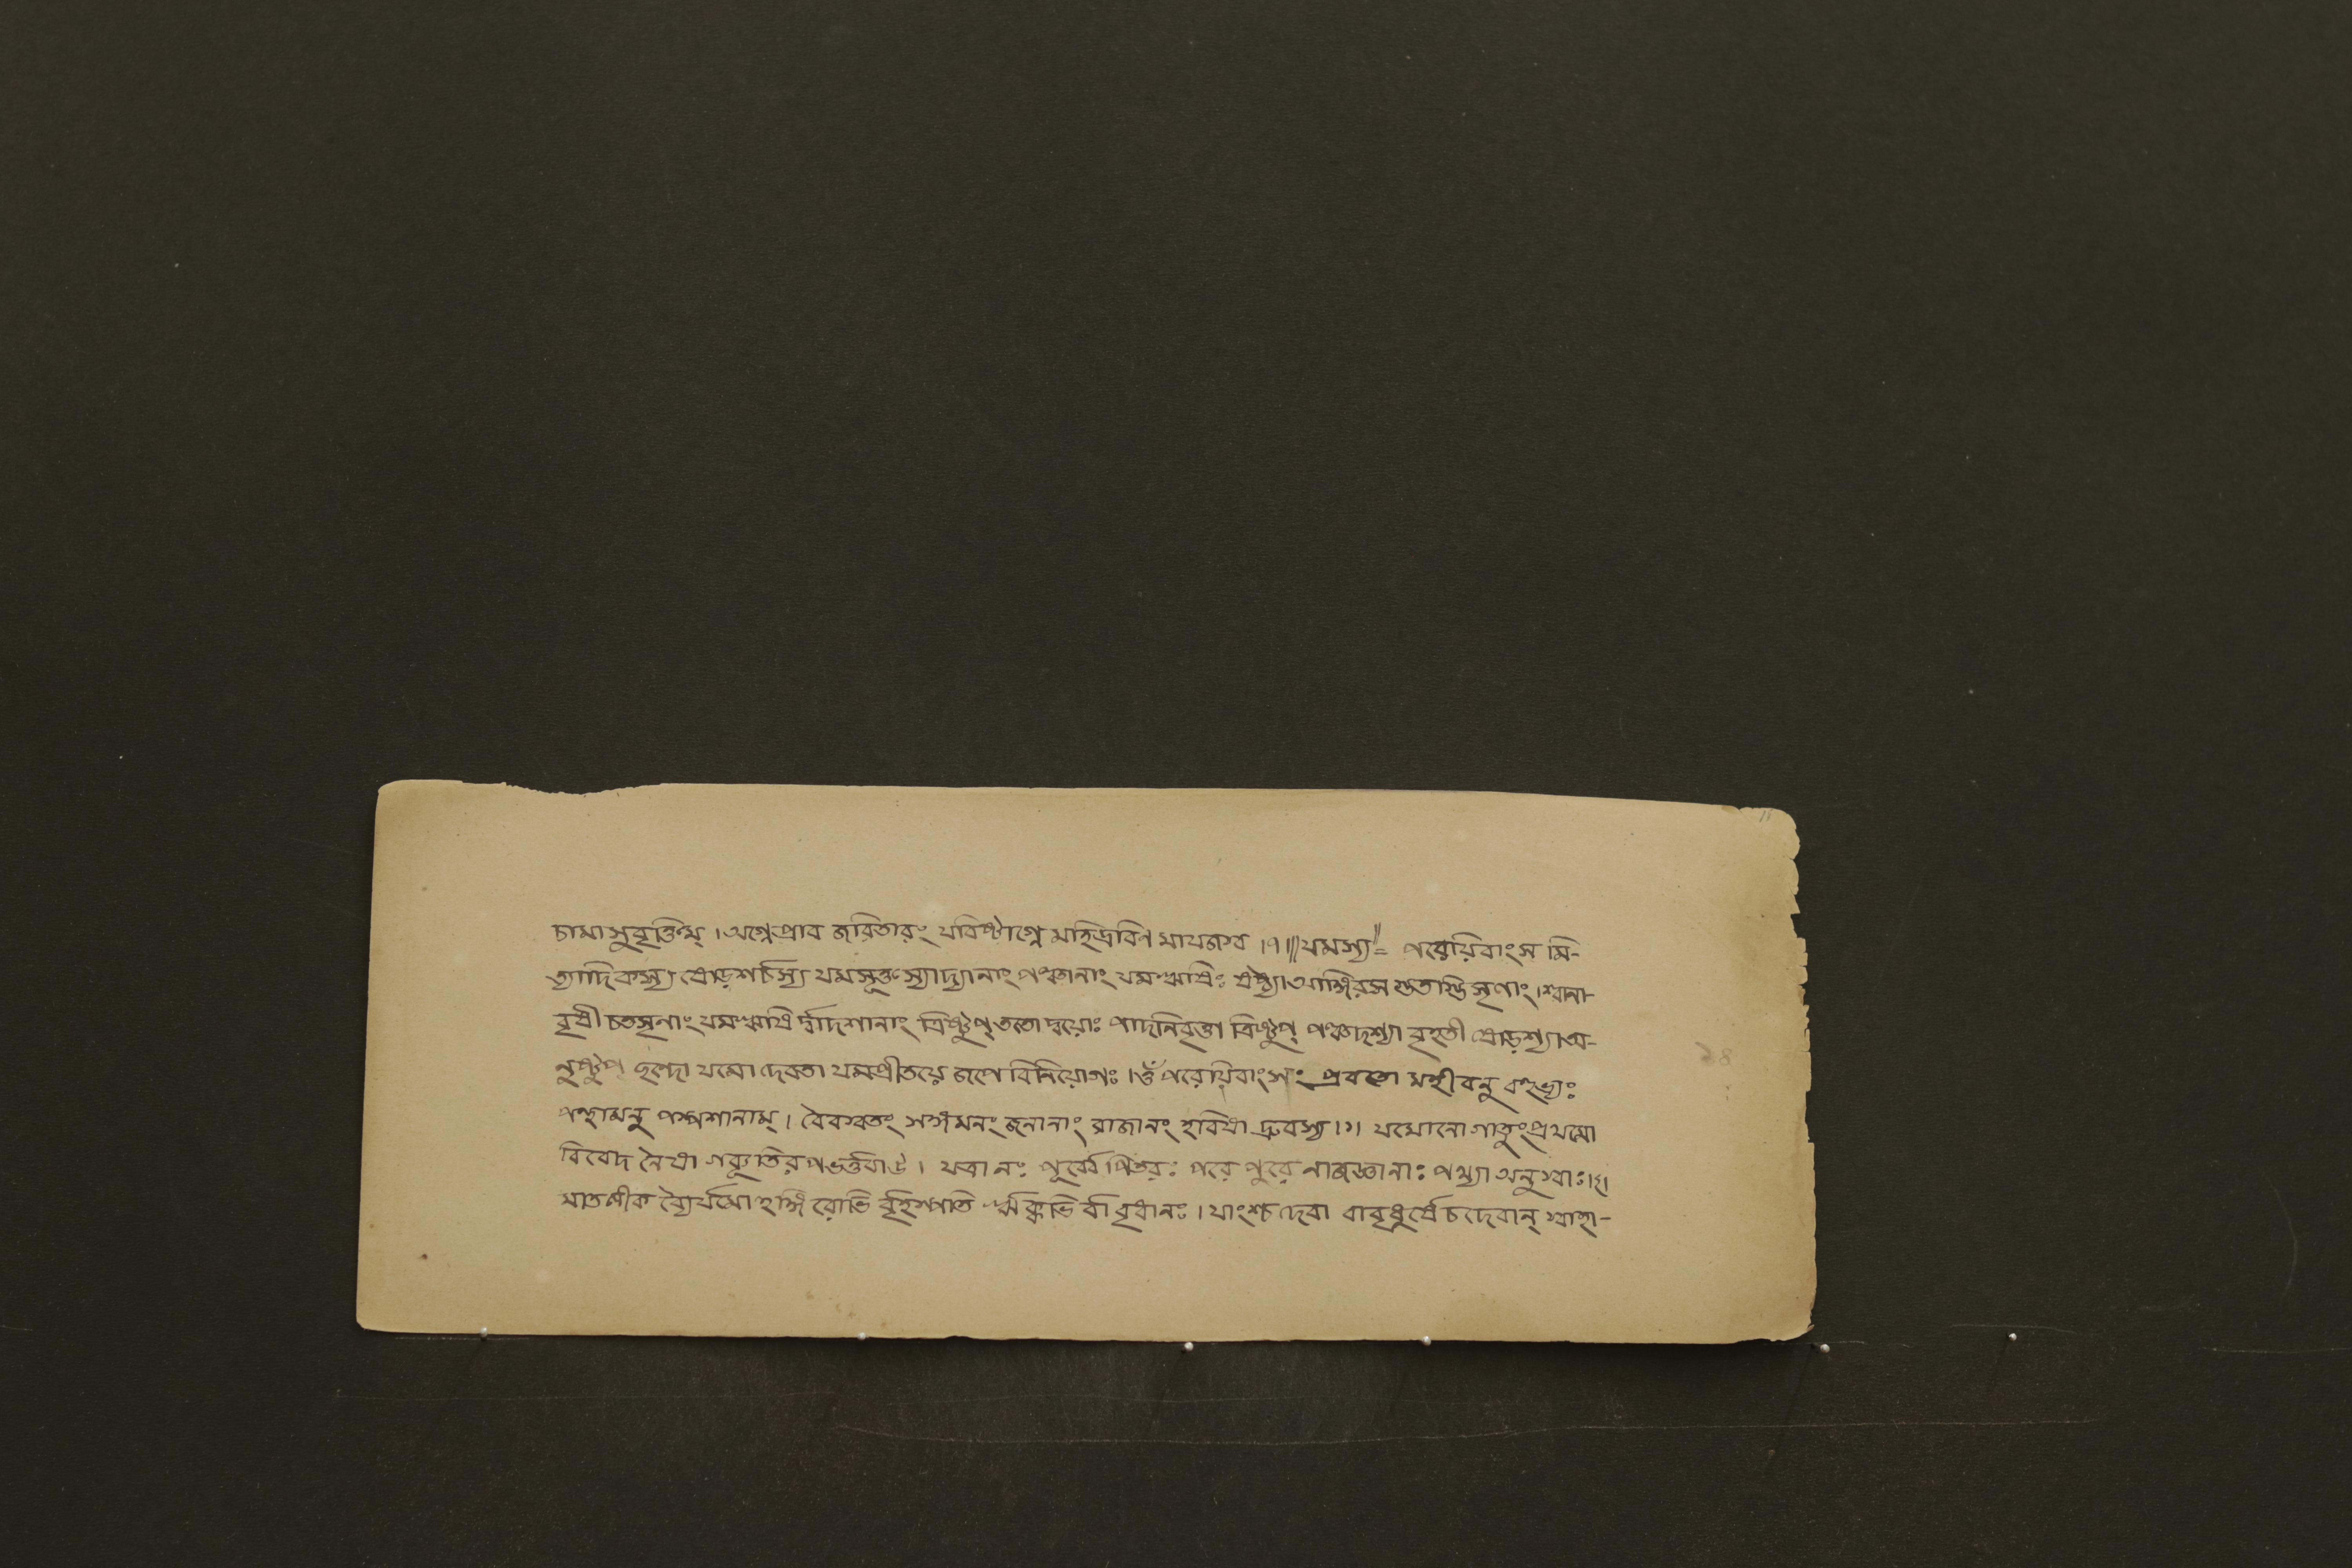 চামাসুবৃক্তিম্ । অগ্নেপ্রাব জরিতারং যবিষ্টাগ্নে মহিদ্রবিণ মাযজস্ব ।৭॥॥যমস্য॥= পরেয়িবাংস মি-
ত্যাদিকস্য ষোড়শর্চস্য যমসূক্তস্যাদ্যানাং পঞ্চানাং যমঋষিঃ ষষ্ঠ্যাআঙ্গিরস শ্বানা-
বৃষী চতসৃনাং যমঋষি র্দ্বাদশানাং ত্রিষ্টুপ্ ততো দ্বয়োঃ পাদনিবৃত্তা ত্রিষ্টুপ্ পঞ্চদশ্যা বৃহতী ষোড়শ্যাঅ-
নুষ্টুপ্ ছন্দো যমো দেবতা যমপ্রীতয়ে জপে বিনিয়োগঃ ।ওঁ পরেয়িবাংসং প্রবতো মহীবনু বহুভ্যঃ
পন্থামনু পস্পশানাম্ । বৈবস্বতং সঙ্গমনং জনানাং রাজানং হবিষা দ্রুবস্য ।১। যমোনো গাতুংপ্রথমো
বিবেদ নৈষা গব্যুতিরপভর্ত্তবাউ । যত্রা নঃ পূর্ব্বে পিতরঃ পরে পুরে নাজজ্ঞানাঃ পথ্যা অনুস্বাঃ।২।
মাতলীক ব্যৈর্যমো হঙ্গিরোভি র্বৃহস্পতি ঋক্কভি র্বা বৃধানঃ । যাংশ্চ দেবা বাবৃধুর্যে চ দেবান্ স্বাহা-
২৪